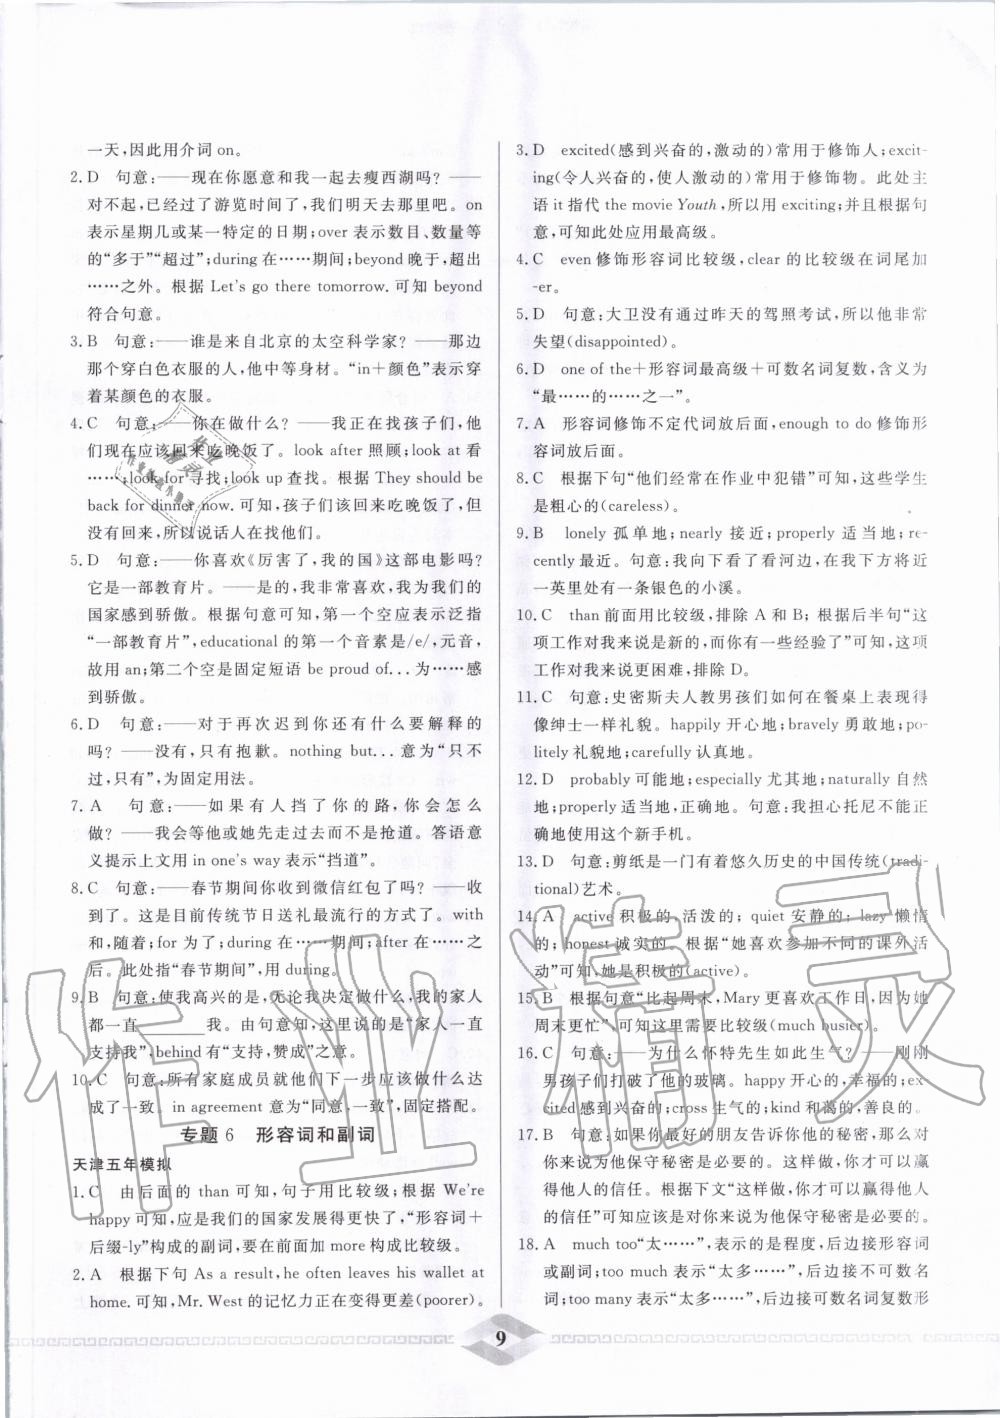 一天,因此用介词 on。
2. D 句意:——现在你愿意和我一起去瘦西湖吗? ——
对不起,已经过了游览时间了,我们明天去那里吧。on
表示星期几或某一特定的日期;over 表示数目、数量等
的“多于”“超过”;during 在……期间;beyond 晚于,超出
……之外。根据 Let's go there tomorrow. 可知 beyond
符合句意。
3. B 句意:——谁是来自北京的太空科学家? ——
那个穿白色衣服的人,他中等身材。“in+颜色”表示穿
着某颜色的衣服。
4. C 句意:——你在做什么? ——我在找孩子们,他
们现在应该回来吃晚饭了。look after 照顾;look at 看
……;look for 寻找;look up 查找。根据 They should be
back for dinner now. 可知,孩子们该回来吃晚饭了,但
没有回来,所以说话人在找他们。
5. D 句意:——你喜欢《厉害了,我的国》这部电影吗?
它是一部教育片。——是的,我非常喜欢,我为我们的
国家感到骄傲。根据句意可知,第一个空应表示泛指
“一部教育片”,educational 的第一个音素是/e/,元音,
故用 an;第二个空是固定短语 be proud of... 为……感
到骄傲。
6. D 句意:——对于再次迟到你还有什么要解释的
吗? ——没有,只有抱歉。nothing but... 意为“只不
过,只有”,为固定用法。
7. A 句意:——如果有人挡了你的路,你会怎么
做? ——我会等他或她先走过去而不是抢道。答语意
义提示上文用 in one's way 表示“挡道”。
8. C 句意:——春节期间你收到微信红包了吗? ——收
到了。这是目前传统节日送礼最流行的方式了。with
和,随着;for 为了;during 在……期间;after 在……之
后。此处指“春节期间”,用 during。
9. B 句意:使我高兴的是,无论我决定做什么,我的家人
都一直________我。由句意知,这里说的是“家人一直
支持我”,behind 有“支持,赞成”之意。
10. C 句意:所有家庭成员就他们下一步应该做什么达
成了一致。in agreement 意为“同意,一致”,固定搭配。
专题 6 形容词和副词
天津五年模拟
1. C 由后面的 than 可知,句子用比较级;根据 We're
happy 可知,应是我们的国家发展得更快了,“形容词+
后缀-ly”构成的副词,要在前面加 more 构成比较级。
2. A 根据下句 As a result,he often leaves his wallet at
home. 可知,Mr. West 的记忆力正在变得更差(poorer)。
3. D excited(感到兴奋的,激动的)常用于修饰人;excit-
ing(令人兴奋的,使人激动的)常用于修饰物。此处主
语 it 指代 the movie Youth,所以用 exciting;并且根据句
意,可知此处应用最高级。
4. C even 修饰形容词比较级,clear 的比较级在词尾加
-er。
5. D 句意:大卫没有通过昨天的驾照考试,所以他非常
失望(disappointed)。
6. D one of the+形容词最高级+可数名词复数,含义为
“最……的……之一”。
7. A 形容词修饰不定代词放后面,enough to do 修饰形
容词放后面。
8. C 根据下句“他们经常在作业中犯错”可知,这些学生
是粗心的(careless)。
9. B lonely 孤单地;nearly 接近;properly 适当地;re-
cently 最近。句意:我向下看了看河边,在我下方将近
一英里处有一条银色的小溪。
10. C than 前面用比较级,排除 A 和 B;根据后半句“这
项工作对我来说是新的,而你有一些经验了”可知,这项
工作对我来说更困难,排除 D。
11. C 句意:史密斯夫人教男孩们如何在餐桌上表现得
像绅士一样礼貌。happily 开心地;bravely 勇敢地;po-
litely 礼貌地;carefully 认真地。
12. D probably 可能地;especially 尤其地;naturally 自然
地;properly 适当地、正确地。句意:我担心托尼不能正
确地使用这个新手机。
13. D 句意:剪纸是一门有着悠久历史的中国传统(tradi-
tional)艺术。
14. A active 积极的,活泼的;quiet 安静的;lazy 懒惰
的;honest 诚实的。根据“她喜欢参加不同的课外活
动”可知,她是积极的(active)。
15. B 根据句意“比起周末,Mary 更喜欢工作日,因为她
周末更忙”,可知这里需要比较级(much busier)。
16. C 句意:——为什么怀特先生如此生气? ——刚刚
男孩子们打破了他的玻璃。happy 开心的,幸福的;ex-
cited 感到兴奋的;cross 生气的;kind 和蔼的,善良的。
17. B 句意:如果你最好的朋友告诉你他的秘密,那么对
你来说为他保守秘密是必要的。这样做,你才可以赢
得他人的信任。根据下文“这样做,你才可以赢得他人
的信任”可知应该是对你来说为他保守秘密是必要的。
18. A much too“太……”,表示的是程度,后边接形容词
或副词;too much 表示“太多……”,后边接不可数名
词;too many 表示“太多……”,后边接可数名词复数形
9
作业精灵